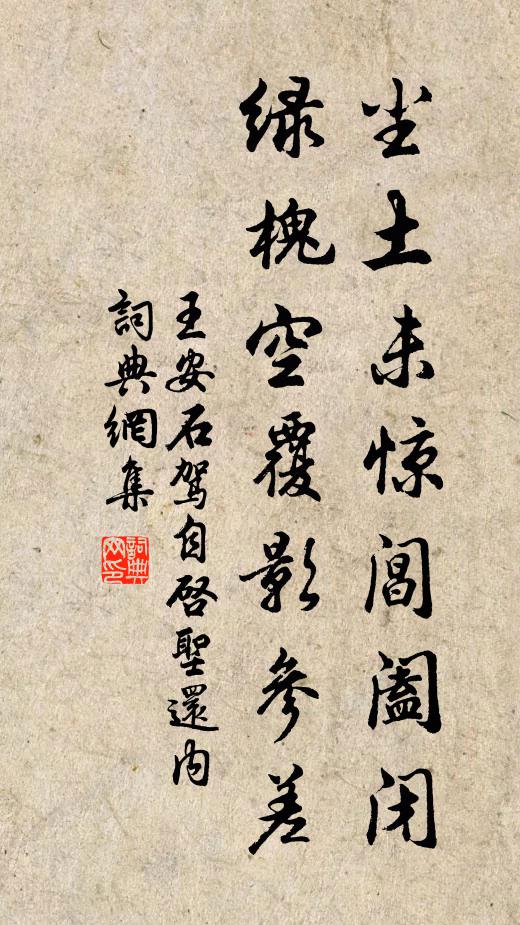 尘土未惊阊阖闭
绿槐空覆影参差
王安石驾自启聖還内
詞典網集
詞典网印